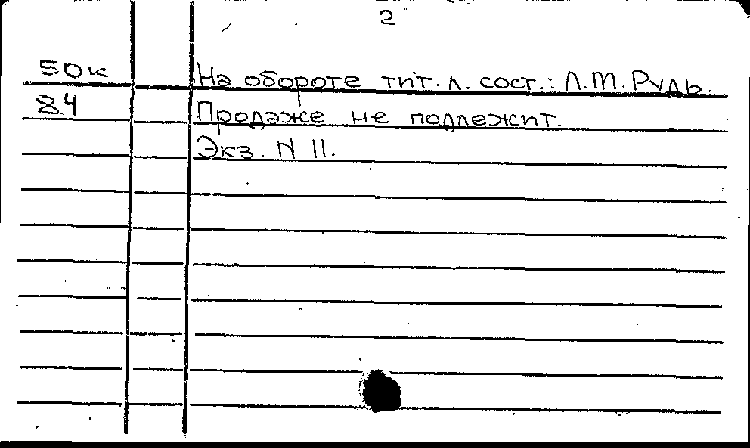 2
50к На обороте тит. л. сост.: Л.М. Рудь.
84 Продаже не подлежит.
Экз. N 11.